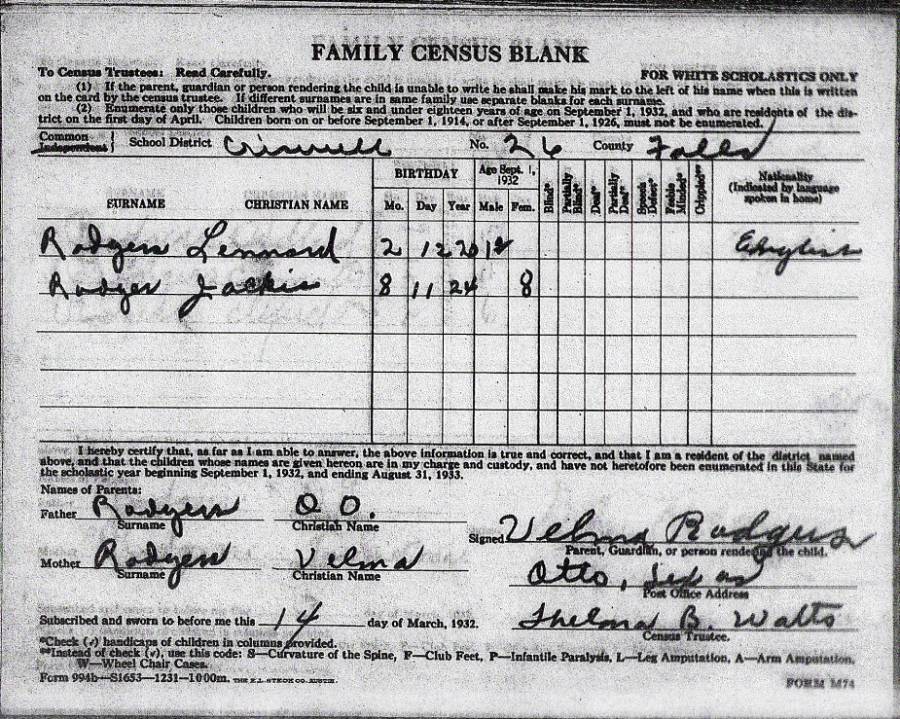 FAMILY CENSUS BLANK
To Census Trustees: Read Carefully. FOR WHITE SCHOLASTICS ONLY
(1) If the parent, guardian or person rendering the child is unable to write he shall make his mark to the left of his name when this is written
on the card by the census trustee. If different surnames are in same family use separate blanks for each surname.
(2) Enumerate only those children who will be six and under eighteen years of age on September 1, 1932, and who are residents of the dis-
trict on the first day of April. Children born on or before September 1, 1914, or after September 1, 1926, must not be enumerated.
Common
Independent School District Criswell No. 26 County Falls
SURNAME CHRISTIAN NAME BIRTHDAY Mo. Day Year Age Sept. 1, 1932 Male Fem. Blind* Partially Blind* Deaf* Partially Deaf* Speech Defect* Feeble Minded* Crippled** Nationality (Indicated by language spoken in home)
Rodgers Lennard 2 12 20 12 English
Rodger Jackie 8 11 24 8
I hereby certify that, as far as I am able to answer, the above information is true and correct, and that I am a resident of the district named
above, and that the children whose names are given hereon are in my charge and custody, and have not heretofore been enumerated in this State for
the scholastic year beginning September 1, 1932, and ending August 31, 1933.
Names of Parents:
Father Rodgers O O.
Surname Christian Name
Signed Velma Rodgers
Parent, Guardian, or person rendering the child.
Mother Rodgers Velma
Surname Christian Name
Otto, Texas
Post Office Address
Subscribed and sworn to before me this 14 day of March, 1932. Thelma B. Walts
Census Trustee.
*Check (✓) handicaps of children in columns provided.
**Instead of check (✓), use this code: S—Curvature of the Spine, F—Club Feet, P—Infantile Paralysis, L—Leg Amputation, A—Arm Amputation,
W—Wheel Chair Cases.
Form 994b—S1653—1231—1000m. THE E.L. STECK CO. AUSTIN. FORM M74